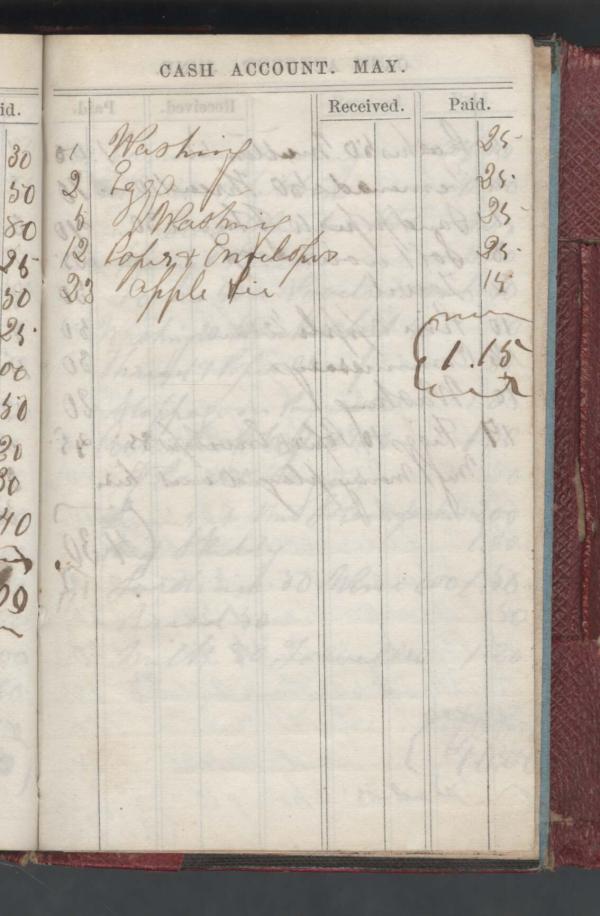 CASH ACCOUNT. MAY.
id.
Received. Paid.
30
50
80
25
50
25
00
50
20
30
40
1 Washing 25
2 Eggs 25
5 Washing 25
12 Paper & Envelopes 25
23 apple pie 15
1.15